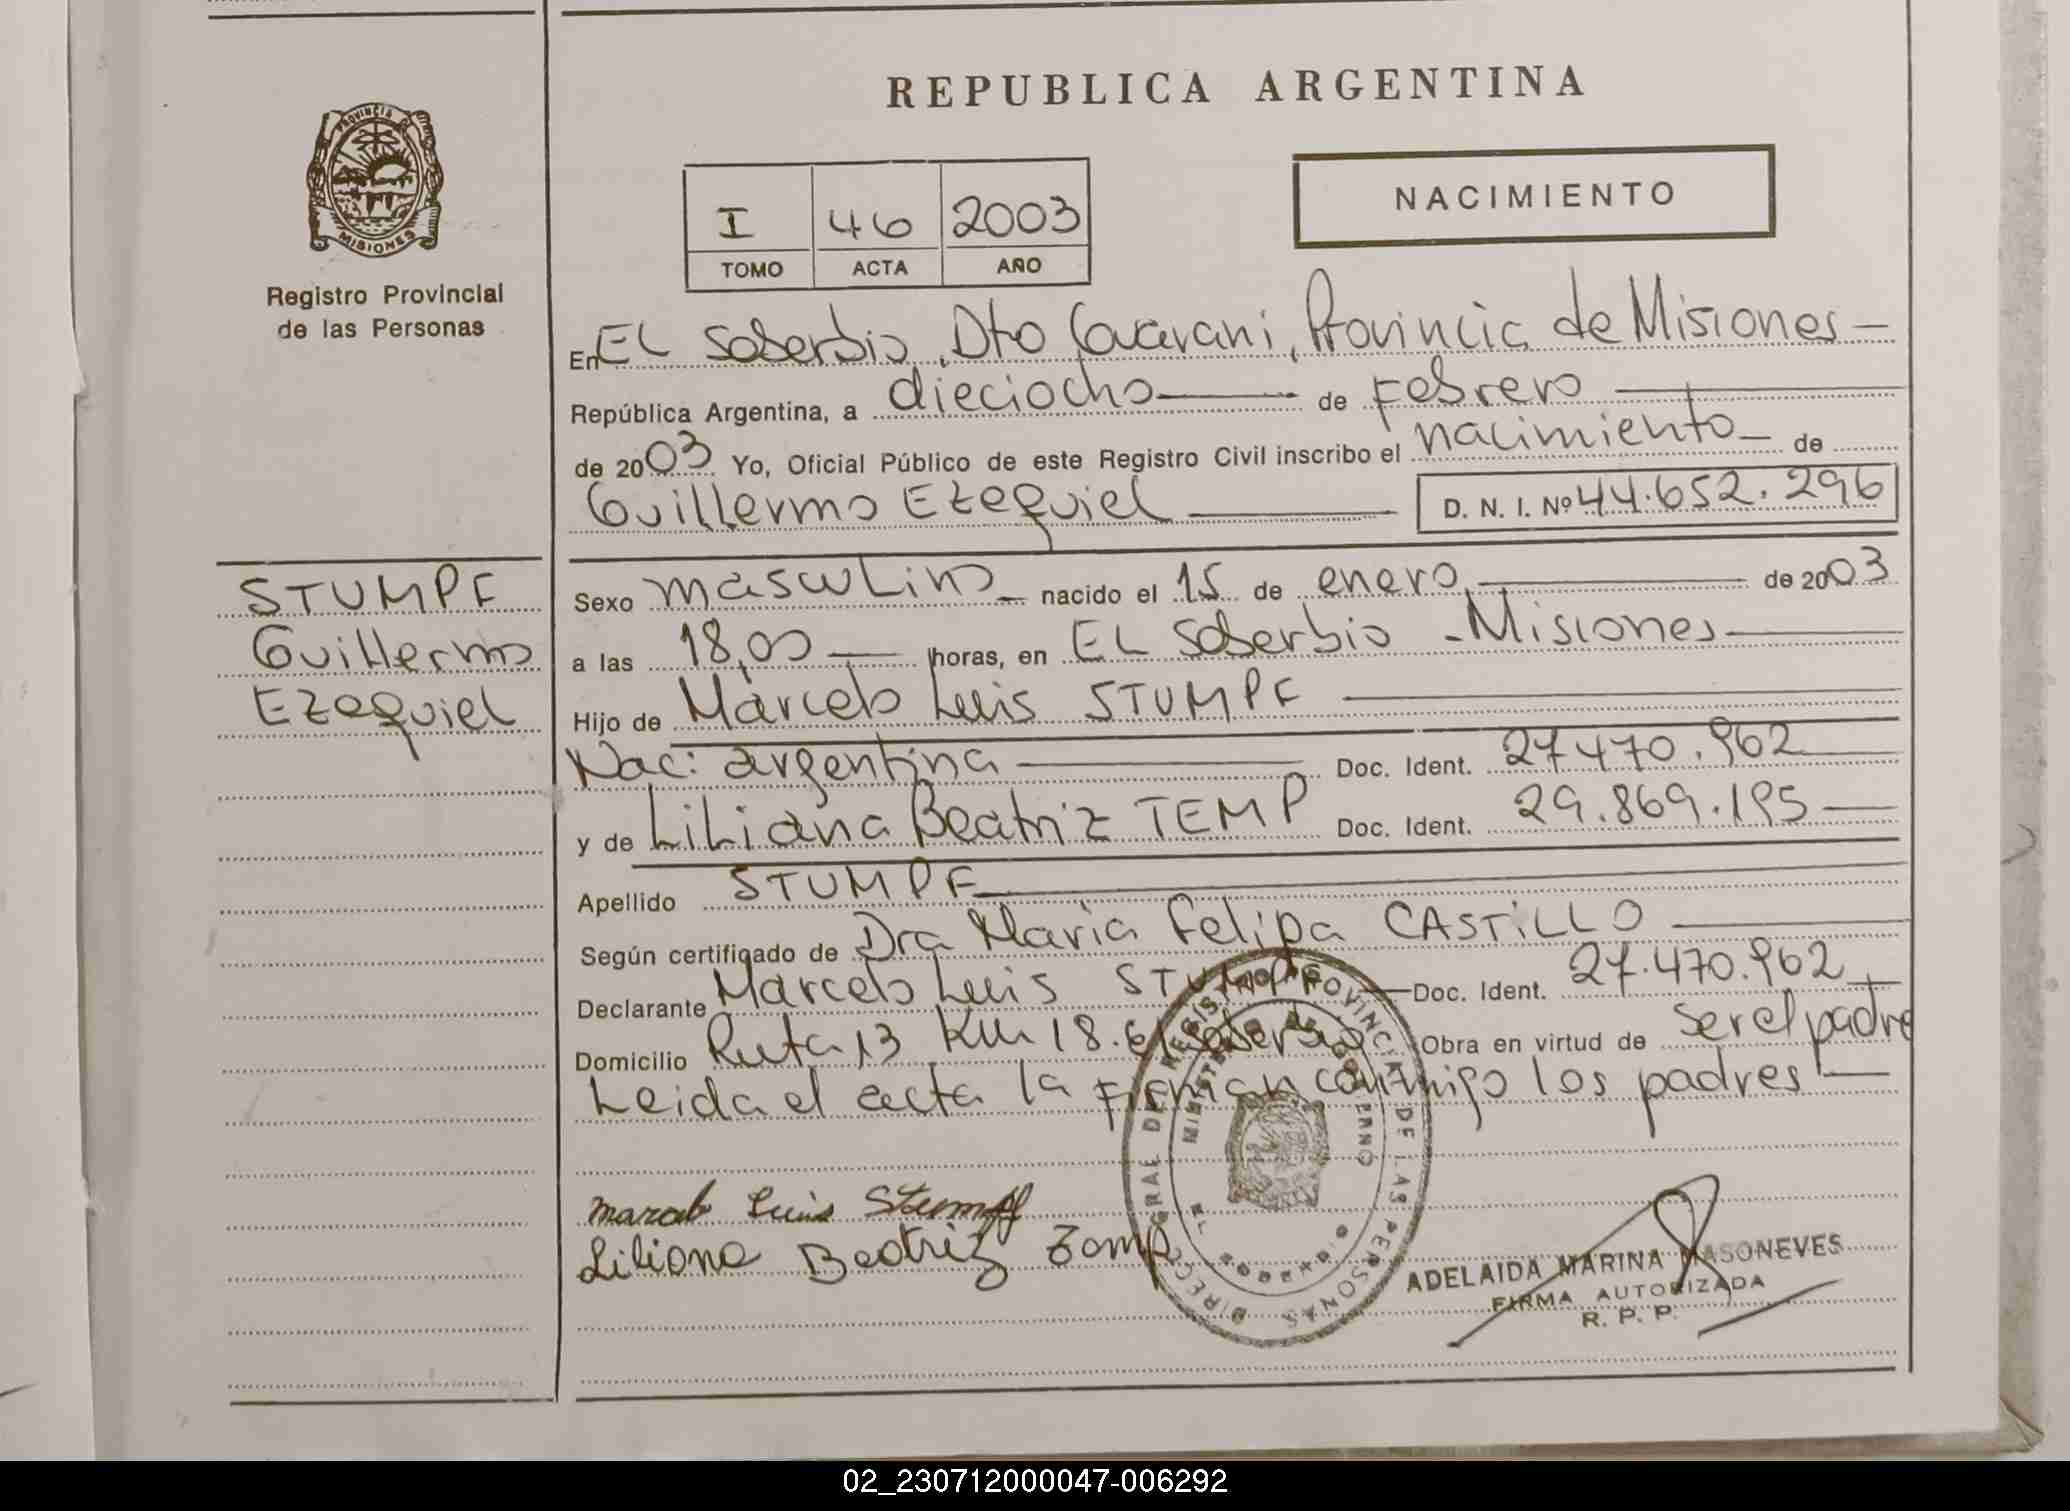 REPUBLICA ARGENTINA
PROVINCIA DE
MISIONES
Registro Provincial
de las Personas
I 46 2003
TOMO ACTA AÑO
NACIMIENTO
En EL Soberbio, Dto Guarani, Provincia de Misiones
República Argentina, a dieciocho de Febrero
de 2003 Yo, Oficial Público de este Registro Civil inscribo el nacimiento de
Guillermo Ezequiel D. N. I. Nº 44.652.296
STUMPF
Guillermo
Ezequiel
Sexo masculino nacido el 15 de enero de 2003
a las 18,00 horas, en EL Soberbio - Misiones
Hijo de Marcelo Luis STUMPF
Nac: argentina Doc. Ident. 27470.962
y de Liliana Beatriz TEMP Doc. Ident. 29.869.195
Apellido STUMPF
Según certificado de Dra Maria Felipa CASTILLO
Declarante Marcelo Luis STUMPF Doc. Ident. 27.470.962
Domicilio Ruta 13 Km 18. El Soberbio Obra en virtud de ser el padre
Leida el acta la firman conmigo los padres
DIRECC. GRAL DEL REGISTRO PROVINCIAL DE LAS PERSONAS
MINISTERIO DE GOBIERNO
EL SOBERBIO
Marcelo Luis Stumpf
Liliana Beatriz Temp
ADELAIDA MARINA MASONEVES
FIRMA AUTORIZADA
R. P. P.
02_230712000047-006292